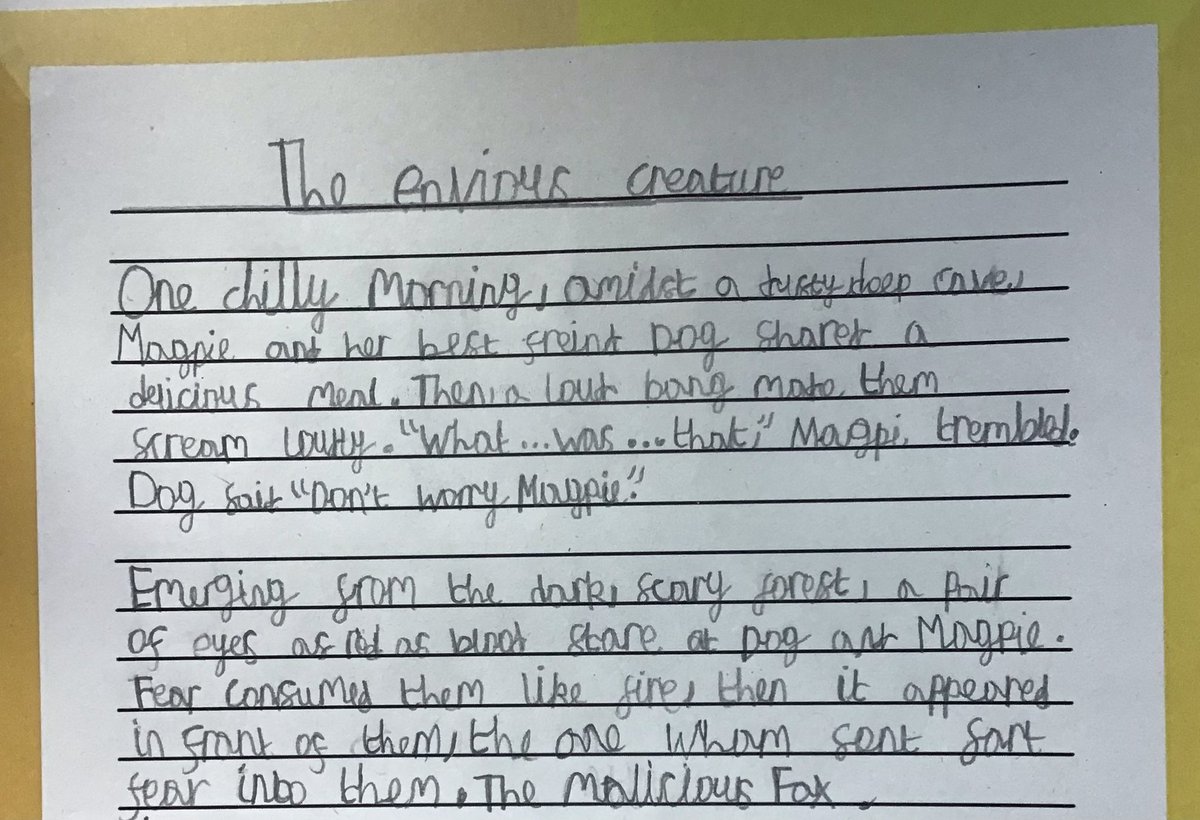 The envious creature
One chilly morning, amidst a dusty, deep cave,
Magpie and her best freind Dog shared a
delicious meal. Then, a loud bang made them
scream loudly. "What...was...that," Magpi trembled.
Dog said "Don't worry Magpie."
Emerging from the dark, scary forest, a pair
of eyes as red as blood stare at Dog and Magpie.
Fear consumed them like fire, then it appeared
in front of them, the one whom sent
fear into them. The malicious Fox.